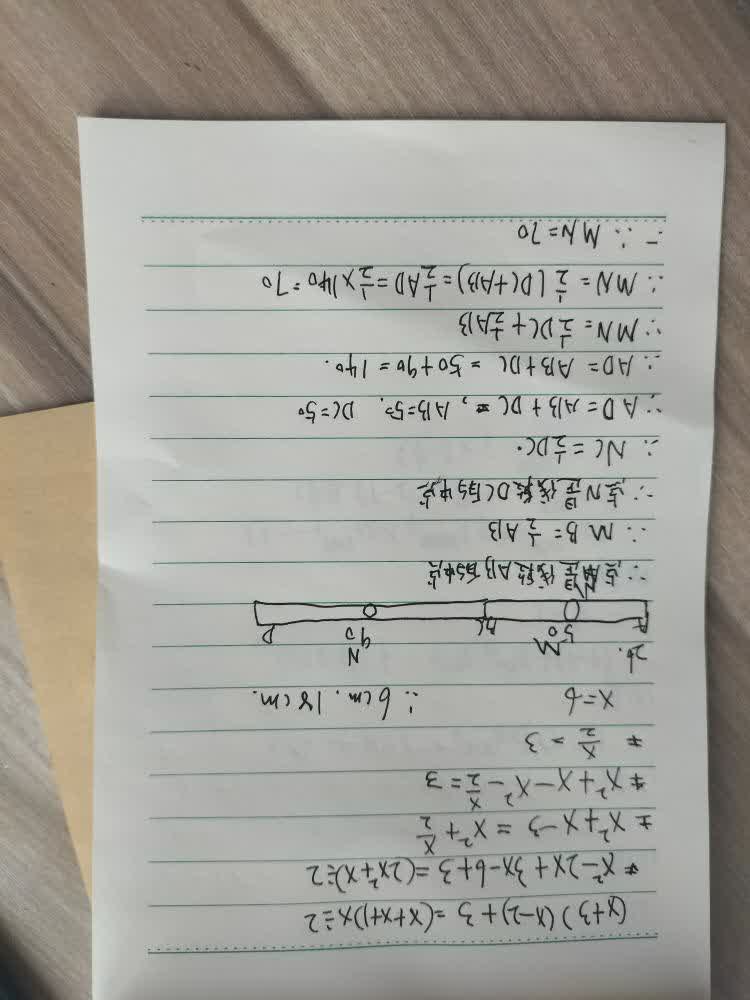 (x+3)(x-2)+3=(x+x+1)x÷2
x²-2x+3x-6+3=(2x²+x)÷2
x²+x-3=x²+x/2
x²+x-x²-x/2=3
x/2=3
x=6 ∴6cm. 18cm.
26.
M N
A 50 BC 90 D
∵点M是线段AB的中点
∴MB=½AB
∵点N是线段DC的中点
∴NC=½DC.
∵AD=AB+DC, AB=50. DC=50
∴AD=AB+DC=50+90=140.
∵MN=½DC+½AB
∴MN=½(DC+AB)=½AD=½×140=70
∴MN=70